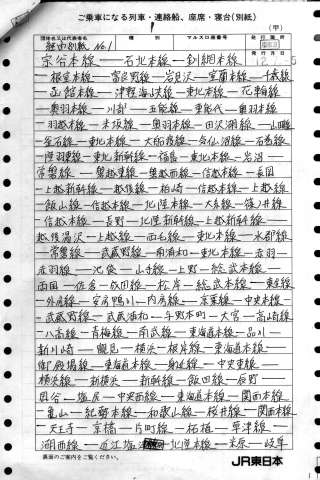 ご乗車になる列車・連絡船、座席・寝台(別紙)
(甲)
団体名又は代表者名 種別 マルス口座番号 発行箇所
経由別紙 No.1
発行月日
宗谷本線—石北本線—釧網本線
—根室本線—富良野線—岩見沢—室蘭本線—千歳線
—函館本線—津軽海峡線—東北本線—花輪線
—奥羽本線—川部—五能線—東能代—奥羽本線
—羽越本線—米坂線—奥羽本線—田沢湖線—山田線
—釜石線—東北本線—大船渡線—気仙沼線—石巻線
—陸羽東線—東北新幹線—福島—東北本線—岩沼—
常磐線—磐越東線—磐越西線—信越本線—長岡
—上越新幹線—越後線—柏崎—信越本線—上越線
—飯山線—信越本線—北陸本線—大糸線—篠ノ井線
—信越本線—長野—北陸新幹線—上越新幹線—
越後湯沢—上越線—両毛線—東北本線—水郡線
—常磐線—武蔵野線—南浦和—東北本線—赤羽—
赤羽線—池袋—山手線—上野—総武本線—
両国—佐倉—成田線—松岸—総武本線—東金線
—外房線—安房鴨川—内房線—京葉線—中央本線
—武蔵野線—武蔵浦和—与野本町—大宮—高崎線
—八高線—青梅線—南武線—東海道本線—品川
新川崎—鶴見—横浜—根岸線—東海道本線—
御殿場線—東海道本線—身延線—中央東線—
横浜線—新横浜—新幹線—飯田線—辰野
岡谷—塩尻—中央西線—東海道本線—関西本線
—亀山—紀勢本線—和歌山線—桜井線—関西本線
—天王寺—京橋—片町線—柘植—草津線—
湖西線—近江塩津—北陸本線—米原—岐阜
裏面のご案内をご覧ください。
JR東日本